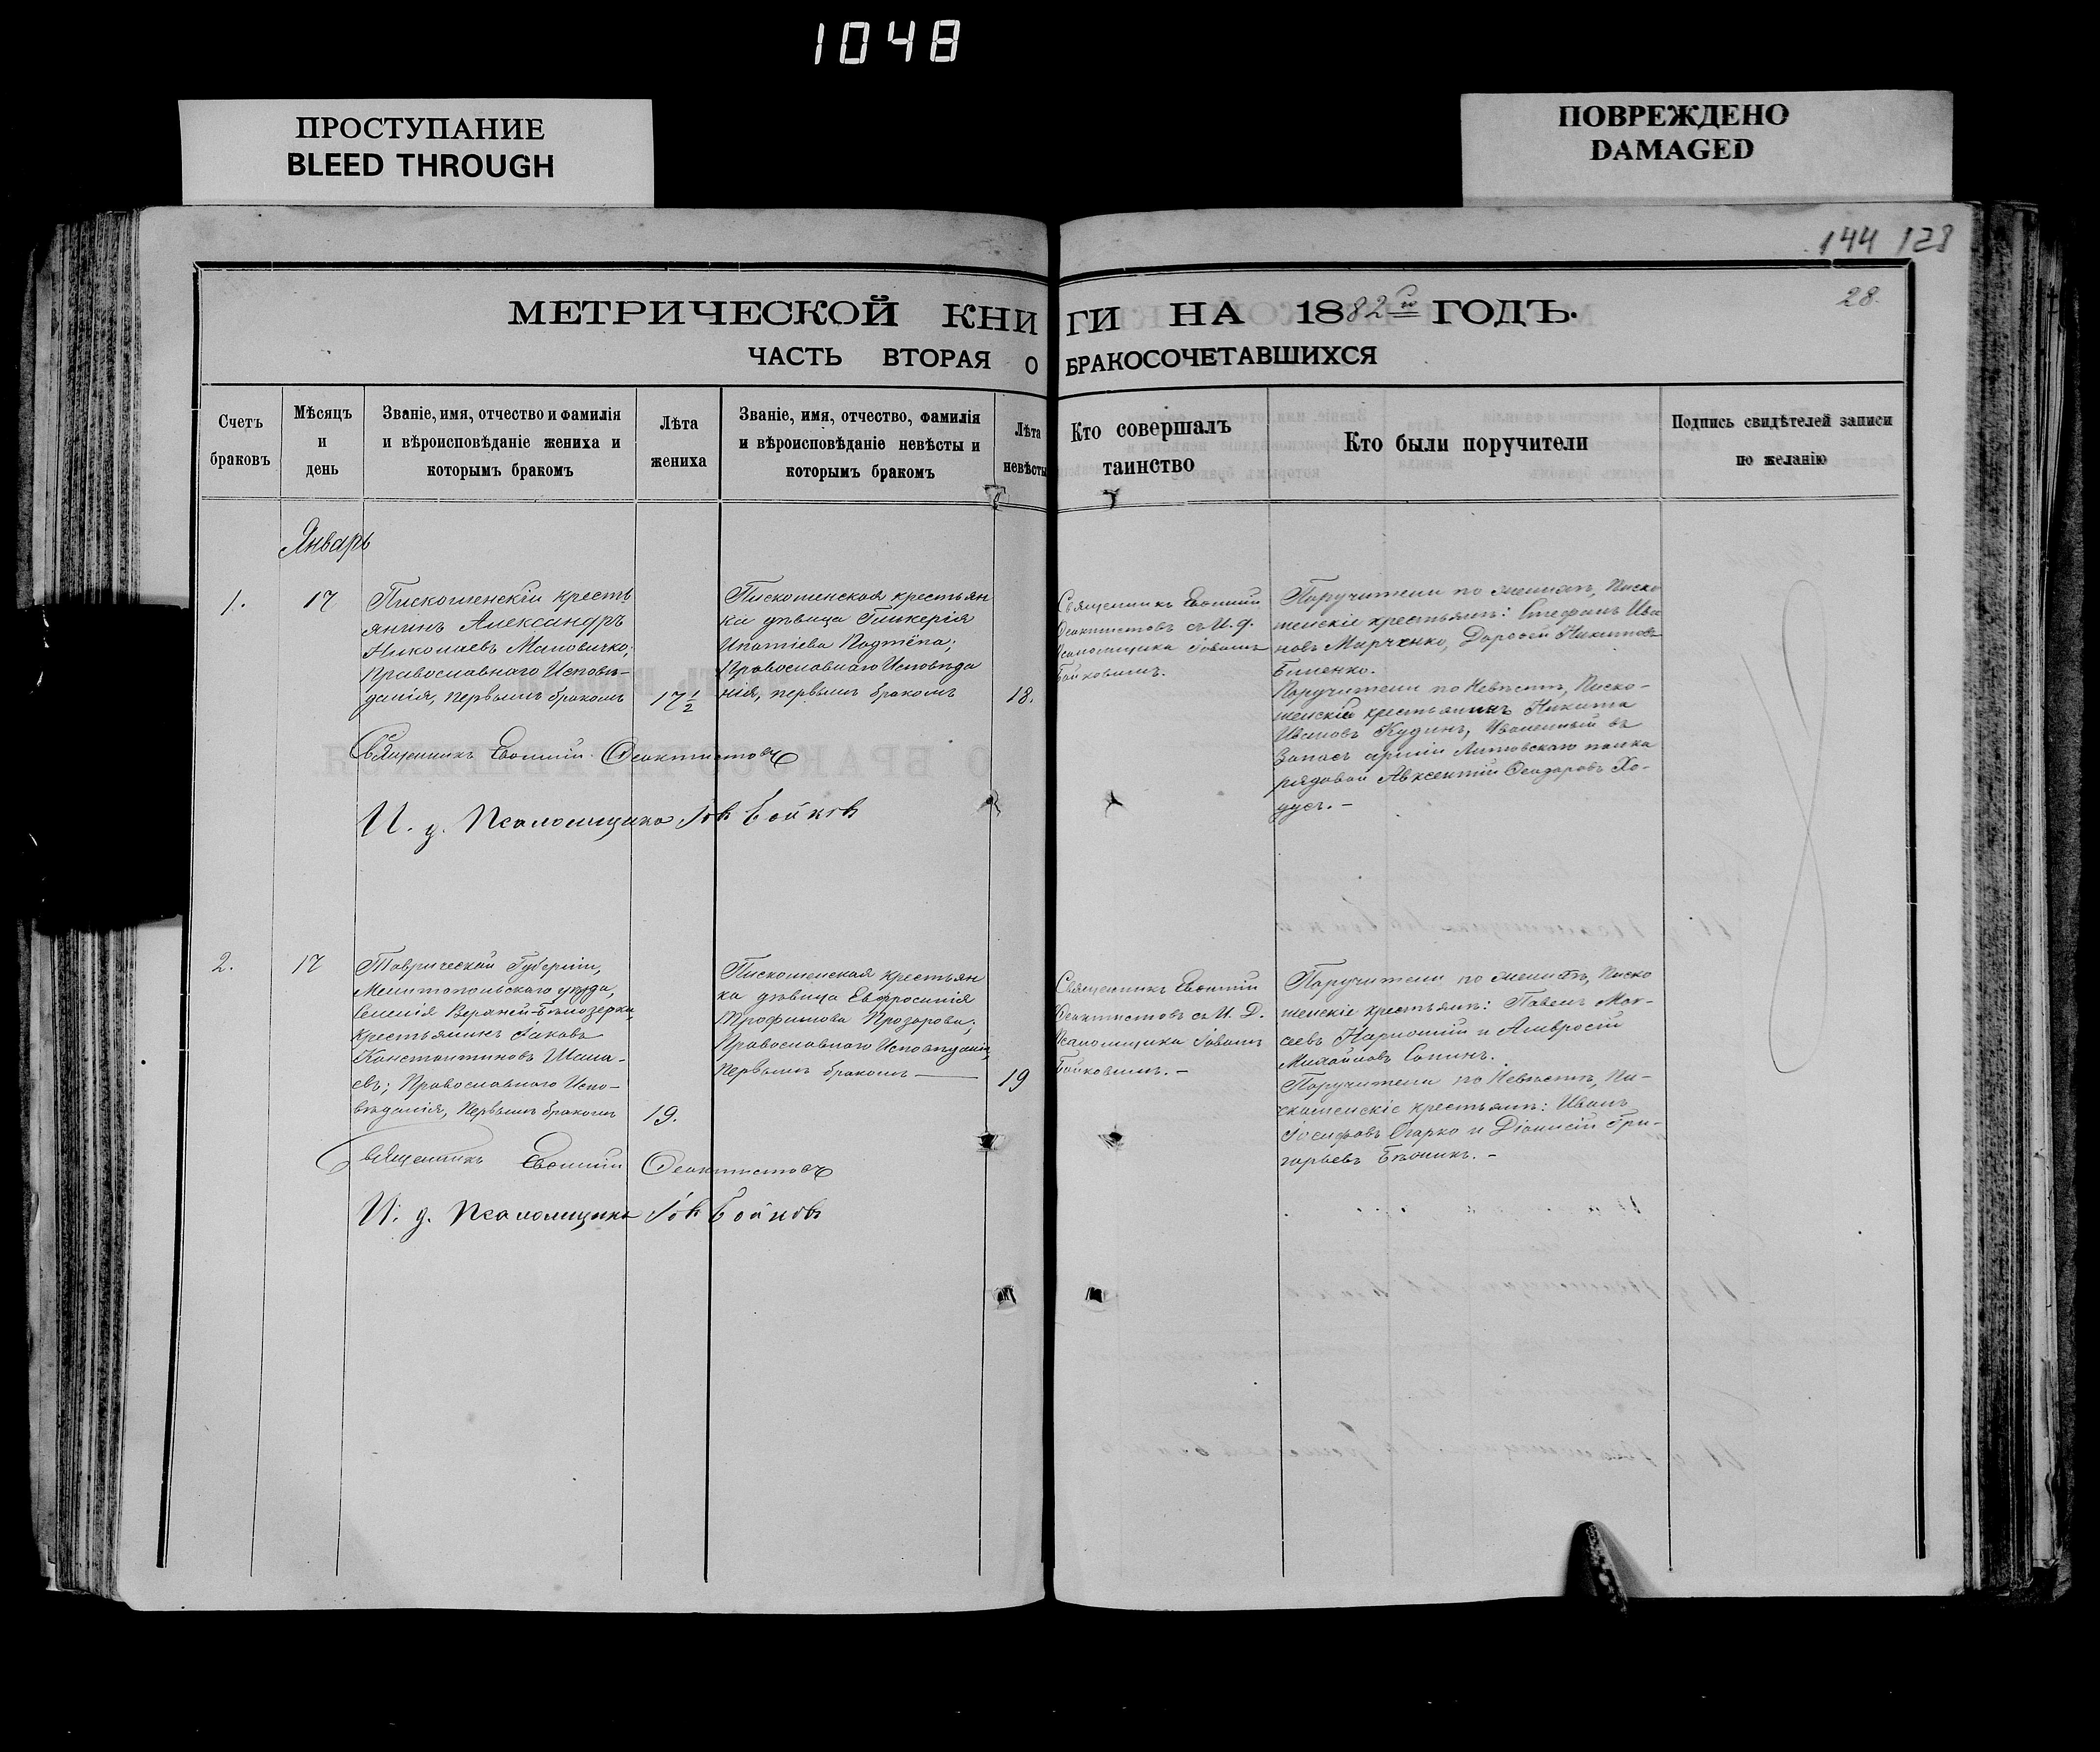 1048
ПРОСТУПАНИЕ
BLEED THROUGH
ПОВРЕЖДЕНО
DAMAGED
144 128
28.
МЕТРИЧЕСКОЙ КНИГИ НА 1882го ГОДЪ.
ЧАСТЬ ВТОРАЯ О БРАКОСОЧЕТАВШИХСЯ
Счетъ
браковъ
Мѣсяцъ
и
день
Званіе, имя, отчество и фамилія
и вѣроисповѣданіе жениха и
которымъ бракомъ
Лѣта
жениха
Званіе, имя, отчество, фамилія
и вѣроисповѣданіе невѣсты и
которымъ бракомъ
Лѣта
невѣсты
Кто совершалъ
таинство
Кто были поручители
Подпись свидѣтелей записи
по желанію
Январь
1.
17
Пискошенскій кресть
янинъ Александръ
Николаевъ Мановичко;
Православнаго Исповѣ-
данія, первымъ бракомъ
17 1/2
Пискошенская крестьян
ка дѣвица Гликерія
Ипатіева Подтёпа;
Православнаго Исповѣда
нія, первымъ бракомъ
18.
Священникъ Евѳимій
Ѳеоктистовъ съ И. д.
Псаломщика Іовомъ
Бойковымъ.
Поручители по женихѣ, Писко
шенскіе крестьяне: Стефанъ Ива
новъ Марченко, Дороѳей Никитовъ
Биленко.
Поручители по Невѣстѣ, Писко-
шенскій крестьянинъ Никита
Ивановъ Кудинъ, Уволенный въ
Запасъ арміи Литовскаго полка
рядовой Авксентій Ѳеодоровъ Хо-
дусъ. -
Священникъ Евѳимій Ѳеоктистовъ
И. д. Псаломщика Іовъ Бойковъ
2.
17
Таврической Губерніи,
Мелитопольскаго уѣзда,
Селенія Верхней-Бѣлозерки,
крестьянинъ Іаковъ
Константиновъ Шама-
евъ; Православнаго Испо-
вѣданія, Первымъ бракомъ
19.
Пискошенская Крестьян
ка дѣвица Евфросинія
Трофимова Прозорова;
Православнаго Исповѣданія,
Первымъ бракомъ -
19
Священникъ Евѳимій
Ѳеоктистовъ съ И. Д.
Псаломщика Іовомъ
Бойковымъ. -
Поручители по женихѣ, Писко
шенскіе крестьяне: Павелъ Мок-
сеевъ Нарожній и Амвросій
Михайловъ Сопинъ.
Поручители по Невѣстѣ, Пи-
скошенскіе крестьяне: Иванъ
Іосифовъ Огарко и Діонисій Гри-
горьевъ Бѣликъ. -
Священникъ Евѳимій Ѳеоктистовъ
И. д. Псаломщика Іовъ Бойковъ